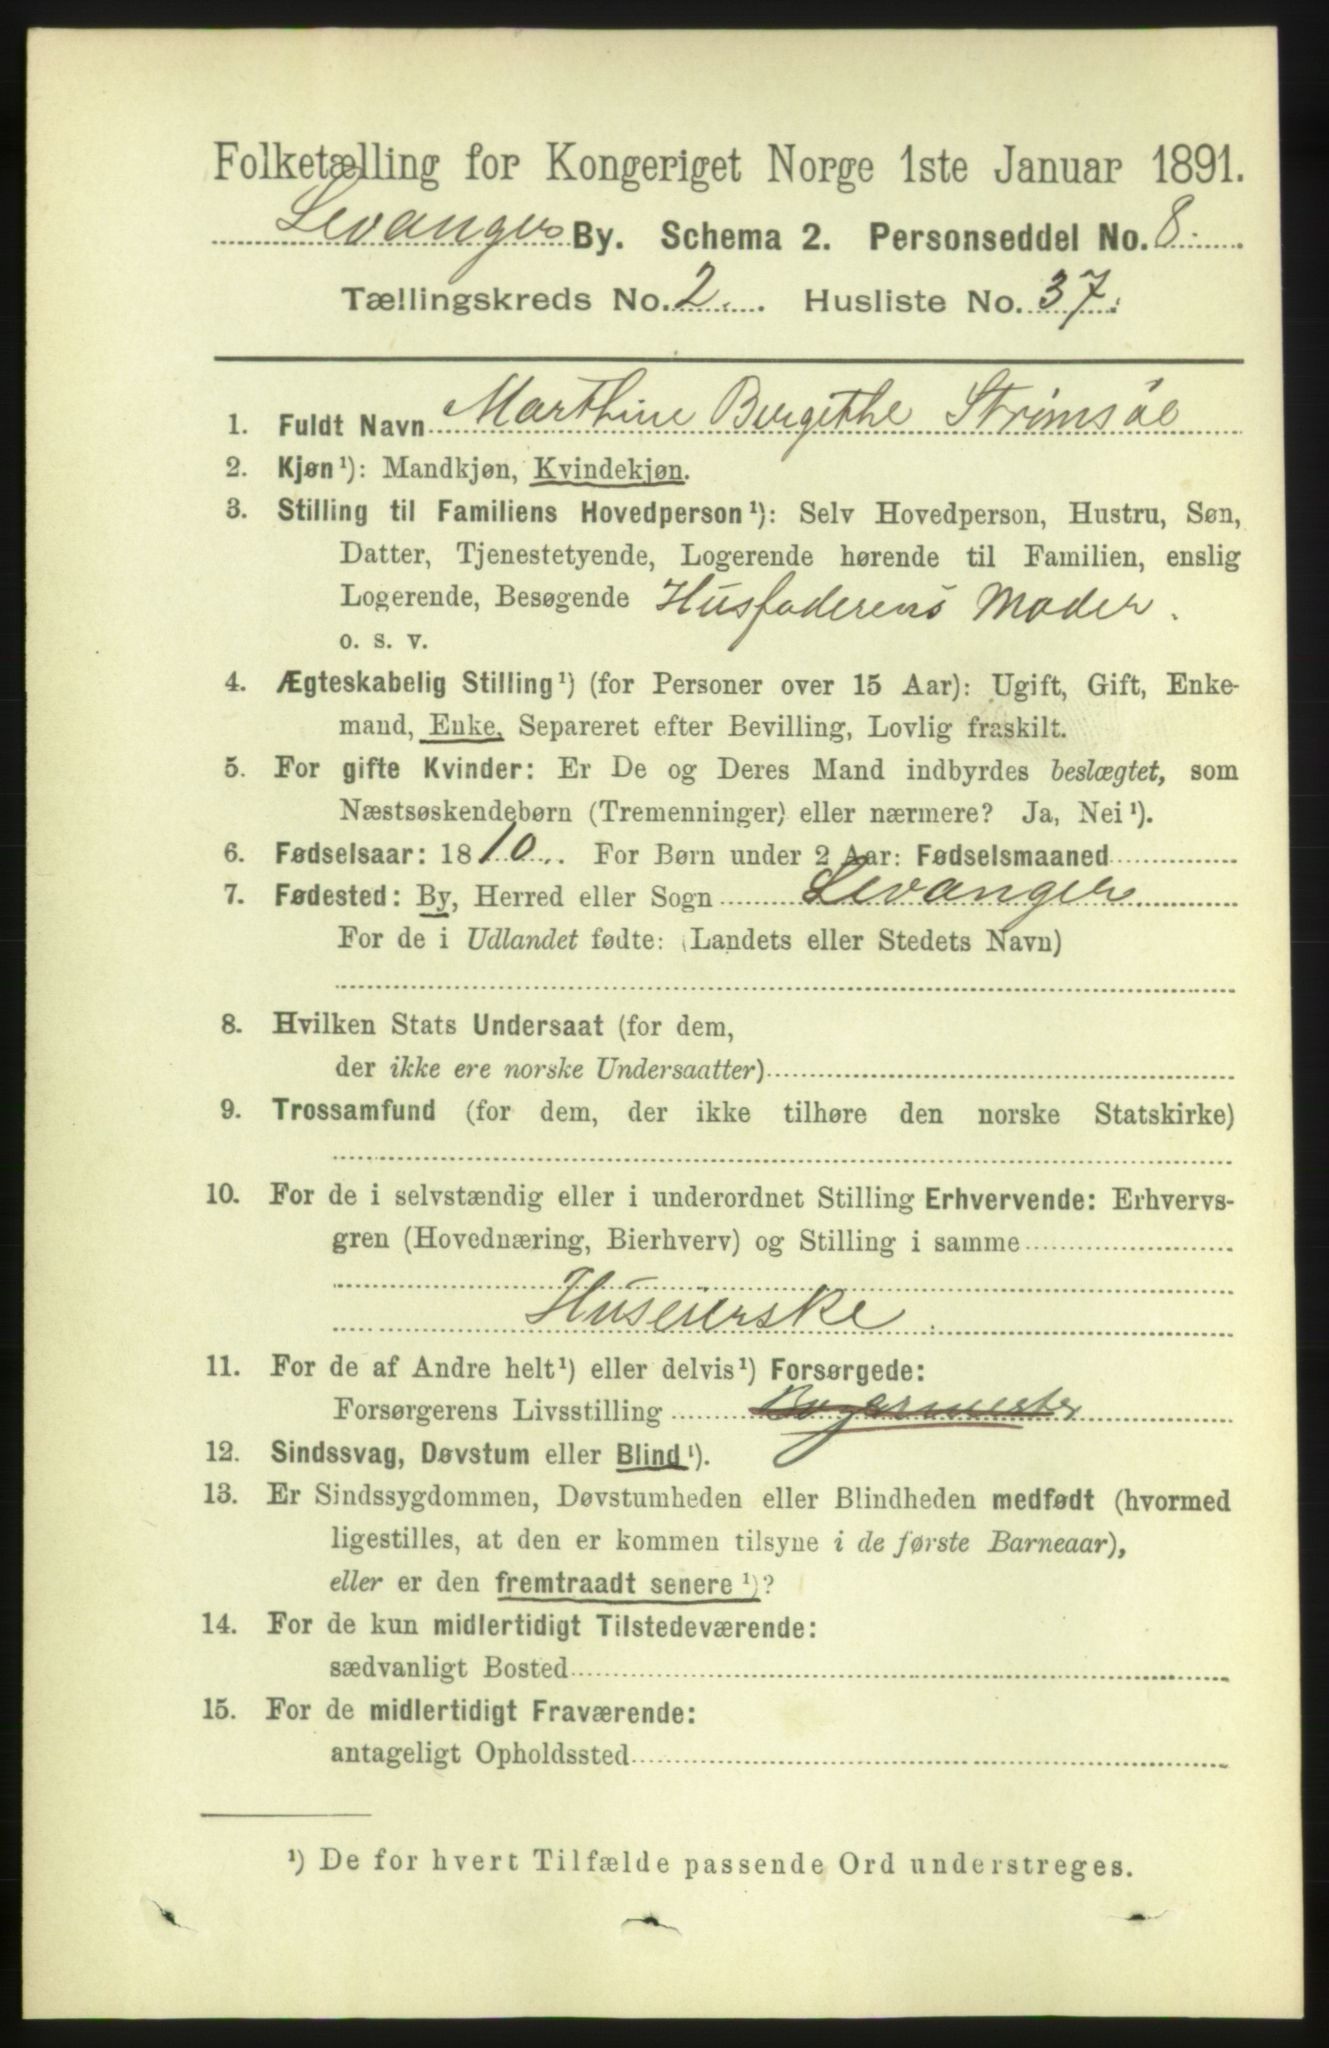 Folketælling for Kongeriget Norge 1ste Januar 1891.
Levanger By. Schema 2. Personseddel No. 8
Tællingskreds No. 2. Husliste No. 37.
1. Fuldt Navn Marthine Bergithe Strømsøe
2. Kjøn¹): Mandkjøn, Kvindekjøn.
3. Stilling til Familiens Hovedperson¹): Selv Hovedperson, Hustru, Søn,
Datter, Tjenestetyende, Logerende hørende til Familien, enslig
Logerende, Besøgende Husfaderens Moder.
o. s. v.
4. Ægteskabelig Stilling¹) (for Personer over 15 Aar): Ugift, Gift, Enke-
mand, Enke, Separeret efter Bevilling, Lovlig fraskilt.
5. For gifte Kvinder: Er De og Deres Mand indbyrdes beslægtet, som
Næstsøskendebørn (Tremenninger) eller nærmere? Ja, Nei¹).
6. Fødselsaar: 1810. For Børn under 2 Aar: Fødselsmaaned
7. Fødested: By, Herred eller Sogn Levanger
For de i Udlandet fødte: (Landets eller Stedets Navn)
8. Hvilken Stats Undersaat (for dem,
der ikke ere norske Undersaatter)
9. Trossamfund (for dem, der ikke tilhøre den norske Statskirke)
10. For de i selvstændig eller i underordnet Stilling Erhvervende: Erhvervs-
gren (Hovednæring, Bierhverv) og Stilling i samme
Huseierske.
11. For de af Andre helt¹) eller delvis¹) Forsørgede:
Forsørgerens Livsstilling
12. Sindssvag, Døvstum eller Blind¹).
13. Er Sindssygdommen, Døvstumheden eller Blindheden medfødt (hvormed
ligestilles, at den er kommen tilsyne i de første Barneaar),
eller er den fremtraadt senere¹)?
14. For de kun midlertidigt Tilstedeværende:
sædvanligt Bosted
15. For de midlertidigt Fraværende:
antageligt Opholdssted
¹) De for hvert Tilfælde passende Ord understreges.